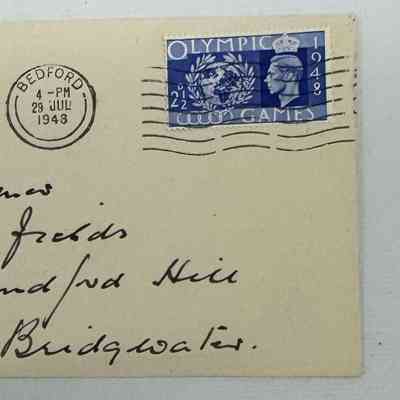 BEDFORD
4 - PM
29 JUL
1948
OLYMPIC
1948
2½
GAMES
fields
Hill
Bridgwater.